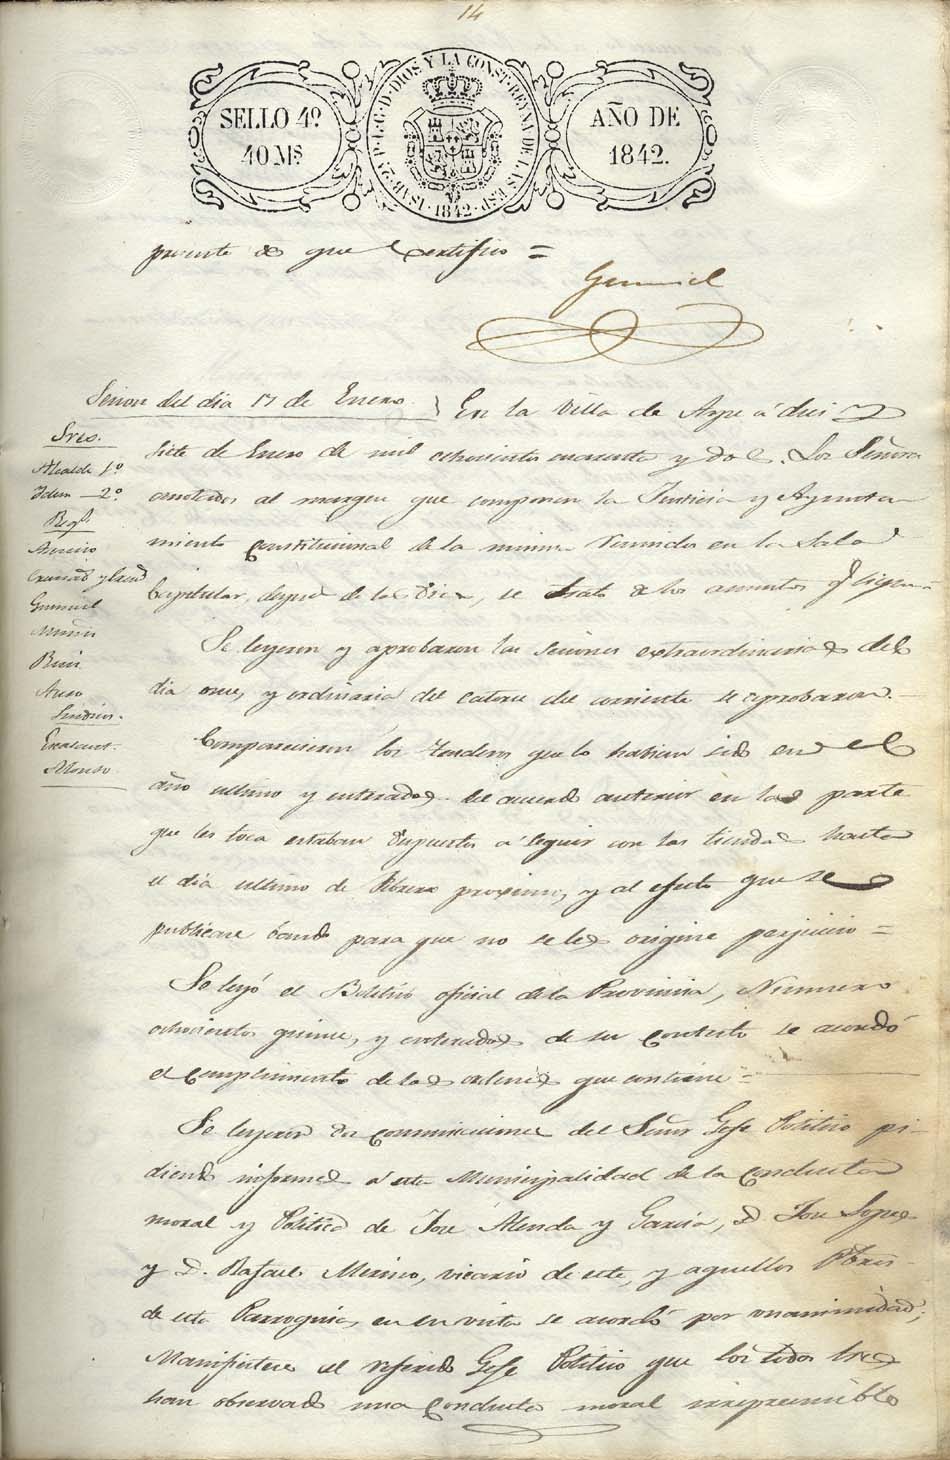 14
SELLO 4º
40 Mˢ
ISAB. 2ª P. L. G. D. DIOS Y LA CONST. REYNA DE LAS ESP.
1842
AÑO DE
1842.
de que Certifico =
Gumiel
Sesion del dia 17 de Enero.
Sres.
Alcalde 1º
Idem 2º
Regs
Asencio
Gumiel
Ruiz
Sindicos.
Alonso
En la Villa de Aspe á diez y
siete de Enero de mil ochocientos cuarenta y dos. Los Señores
anotados al margen que componen la Justicia y Ayunta
miento Constitucional de la misma reunidos en la Sala
Capitular, despues de la Oracion, se trató de los asuntos qe siguen
Se leyeron y aprobaron las Sesiones extraordinarias del
dia once, y ordinaria del catorce del corriente se aprobaron.
Comparecieron los tenderos que lo habian sido en el
año ultimo y enterados del acuerdo anterior en la parte
que les toca estaban dispuestos á seguir con las tiendas hasta
el dia ultimo de Febrero proximo, y al efecto que se
publicase bando para que no se les origine perjuicio =
Se leyó el Boletin oficial de la Provincia, Numero
ochocientos quince, y enterados de su contesto se acordó
el cumplimiento de las ordenes que contiene =
Se leyeron dos comunicaciones del Señor Gefe Politico pi-
diendo informes á esta Municipalidad de la conducta
moral y Politica de José Alenda y Garcia, D. José Lopez
y D. Rafael Merino, vicario de este, y aquellos Pbros
de esta Parroquia, en su vista se acordó por unanimidad;
Manifiestese al referido Gefe Politico que los todos tres
han observado una Conducta moral irreprensible